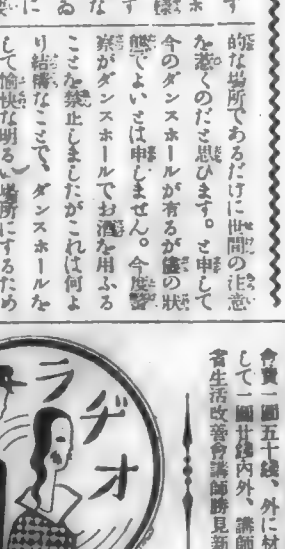 的な場所であるだけに世間の注意
を惹くのだと思ひます。と申して
今のダンスホールが有るが儘の狀
態でよいとは申しません。今度警
察がダンスホールでお酒を用ふる
ことを禁止しましたがこれは何よ
り結構なことで、ダンスホールを
して愉快な明るい場所にするため
會費一圓五十錢、外に材
して一圓廿錢内外、講師
省生活改善會講師勝見新
ラヂオ